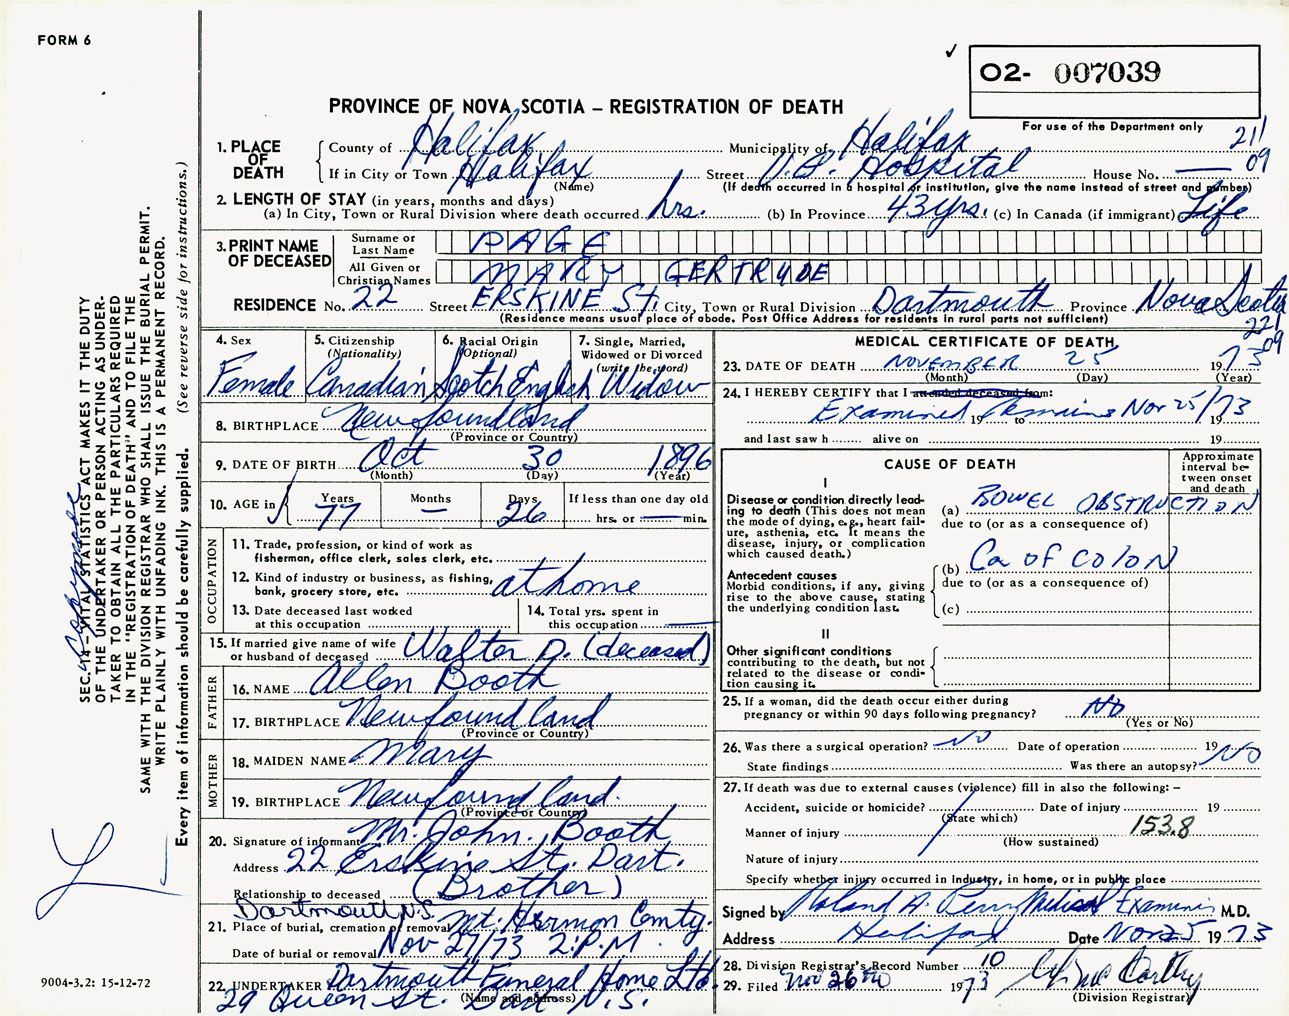 FORM 6
✓
O2- 007039
PROVINCE OF NOVA SCOTIA – REGISTRATION OF DEATH
For use of the Department only
21/
09
1. PLACE OF DEATH
County of Halifax Municipality of Halifax
If in City or Town Halifax Street V.G. Hospital House No. —
(Name) (If death occurred in a hospital or institution, give the name instead of street and number)
2. LENGTH OF STAY (in years, months and days)
(a) In City, Town or Rural Division where death occurred hrs. (b) In Province 43 yrs. (c) In Canada (if immigrant) Life
3. PRINT NAME OF DECEASED
Surname or Last Name PAGE
All Given or Christian Names MARY GERTRUDE
RESIDENCE No. 22 Street ERSKINE St. City, Town or Rural Division Dartmouth Province Nova Scotia
(Residence means usual place of abode. Post Office Address for residents in rural parts not sufficient)
22/
09
4. Sex
Female
5. Citizenship
(Nationality)
Canadian
6. Racial Origin
(Optional)
Scotch English
7. Single, Married,
Widowed or Divorced
(write the word)
Widow
8. BIRTHPLACE Newfoundland
(Province or Country)
9. DATE OF BIRTH Oct 30 1896
(Month) (Day) (Year)
10. AGE in
Years 77
Months —
Days 26
If less than one day old
hrs. or — min.
OCCUPATION
11. Trade, profession, or kind of work as
fisherman, office clerk, sales clerk, etc.
12. Kind of industry or business, as fishing,
bank, grocery store, etc. at home
13. Date deceased last worked
at this occupation
14. Total yrs. spent in
this occupation —
15. If married give name of wife
or husband of deceased Walter D. (deceased)
FATHER
16. NAME Allen Booth
17. BIRTHPLACE Newfoundland
(Province or Country)
MOTHER
18. MAIDEN NAME Mary
19. BIRTHPLACE Newfoundland.
(Province or Country)
20. Signature of informant Mr. John. Booth
Address 22 Erskine St. Dart.
Relationship to deceased (Brother)
Dartmouth, N.S.
21. Place of burial, cremation or removal Mt. Hermon Cmty.
Date of burial or removal Nov 27/73 2:P.M.
22. UNDERTAKER Dartmouth Funeral Home Ltd.
29 Queen St. Dart N.S.
(Name and address)
MEDICAL CERTIFICATE OF DEATH
23. DATE OF DEATH NOVEMBER 25 1973
(Month) (Day) (Year)
24. I HEREBY CERTIFY that I attended deceased from:
Examined Remains Nov 25/73
19 to 19
and last saw h alive on 19
CAUSE OF DEATH
Approximate
interval be-
tween onset
and death
I
Disease or condition directly lead-
ing to death (This does not mean
the mode of dying, e.g., heart fail-
ure, asthenia, etc. It means the
disease, injury, or complication
which caused death.)
(a) BOWEL OBSTRUCTION
due to (or as a consequence of)
Antecedent causes
Morbid conditions, if any, giving
rise to the above cause, stating
the underlying condition last.
(b) Ca OF COLON
due to (or as a consequence of)
(c)
II
Other significant conditions
contributing to the death, but not
related to the disease or condi-
tion causing it.
25. If a woman, did the death occur either during
pregnancy or within 90 days following pregnancy? No
(Yes or No)
26. Was there a surgical operation? NO Date of operation 19
State findings Was there an autopsy? NO
27. If death was due to external causes (violence) fill in also the following: –
Accident, suicide or homicide? Date of injury 19
(State which)
Manner of injury 153.8
(How sustained)
Nature of injury
Specify whether injury occurred in Industry, in home, or in public place
Signed by Roland A. Perry Medical Examiner M.D.
Address Halifax Date Nov 25 1973
28. Division Registrar's Record Number 10
29. Filed Nov 26th 1973
(Division Registrar)
SEC. 14 – VITAL STATISTICS ACT MAKES IT THE DUTY
OF THE UNDERTAKER OR PERSON ACTING AS UNDER-
TAKER TO OBTAIN ALL THE PARTICULARS REQUIRED
IN THE "REGISTRATION OF DEATH" AND TO FILE THE
SAME WITH THE DIVISION REGISTRAR WHO SHALL ISSUE THE BURIAL PERMIT.
WRITE PLAINLY WITH UNFADING INK. THIS IS A PERMANENT RECORD.
Every item of information should be carefully supplied. (See reverse side for instructions.)
9004-3.2: 15-12-72